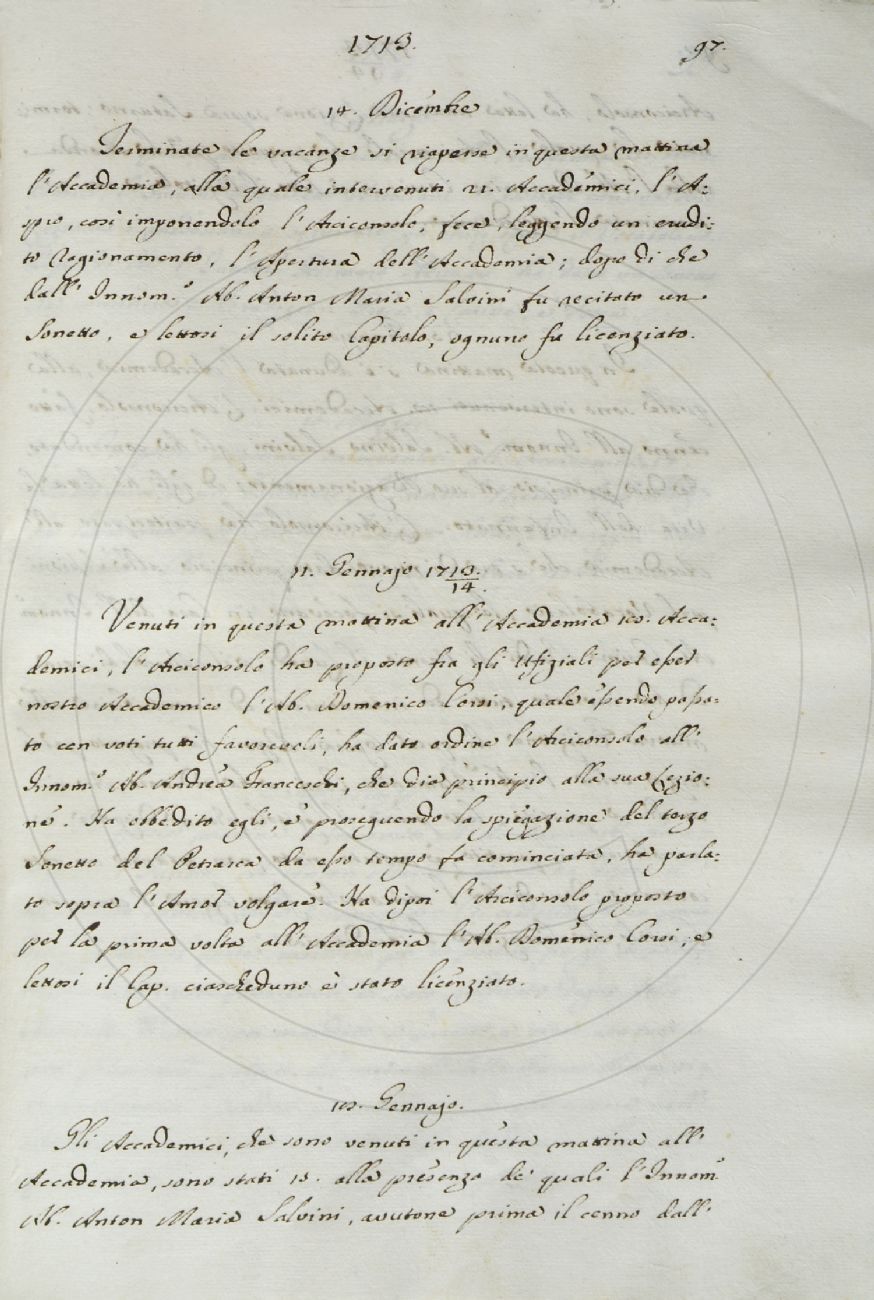 1713.
97.
14. Dicembre
Terminate le vacanze si riaperse in questa mattina
l'Accademia, alla quale intervenuti 21. Accademici, l'A=
spro, così imponendolo l'Arciconsolo, fece, leggendo un erudi=
to Ragionamento, l'Apertura dell'Accademia; dopo di che
dall'Innom.º Ab. Anton Maria Salvini fu recitato un
Sonetto, e lettosi il solito Capitolo, ognuno fu licenziato.
11. Gennajo 1713/14.
Venuti in questa mattina all'Accademia Acca=
demici, l'Arciconsolo ha proposto fra gli Ufiziali per esser
nostro Accademico l'Ab. Domenico Corsi, quale essendo passa=
to con voti tutti favorevoli, ha dato ordine l'Arciconsolo all'
Innom.º Ab. Andrea Franceschi, che dia principio alla sua Lezio=
ne. Ha obbedito egli, e proseguendo la spiegazione del terzo
Sonetto del Petrarca da esso tempo fa cominciata, ha parla=
to sopra l'Amor volgare. Ha dipoi l'Arciconsolo proposto
per la prima volta all'Accademia l'Ab. Domenico Corsi, e
lettosi il Cap. ciascheduno è stato licenziato.
Gennajo.
Gli Accademici, che sono venuti in questa mattina all'
Accademia, sono stati alla presenza de' quali l'Innom.º
Ab. Anton Maria Salvini, avutone prima il cenno dall'